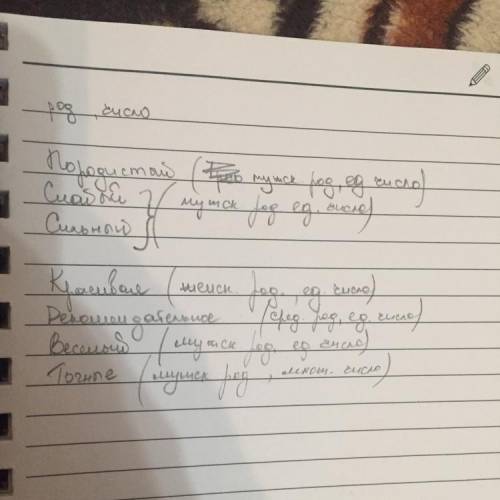 род, число
Породистый (мужск род, ед число)
Слабый
Сильный } (мужск род ед. число)
Красивая (женск. род., ед. число)
Рекомендательное (сред. род, ед. число)
Веселый (мужск род. ед число)
Точные (мужск род, множ. число)